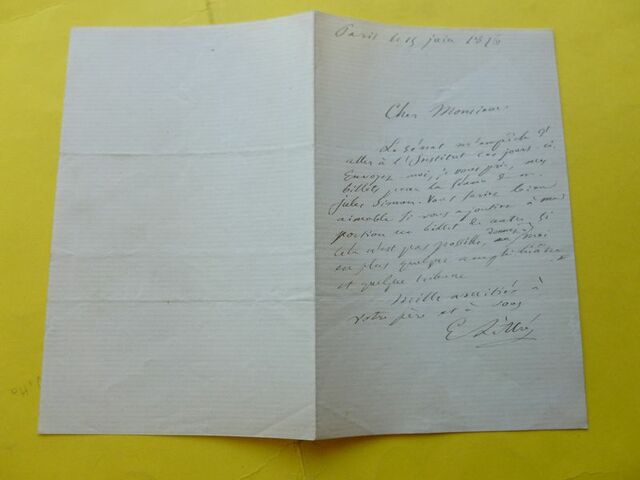 Paris le 15 juin 1876
Cher Monsieur.
Le Sénat m'empêche d'
aller à l'Institut ces jours ci.
Envoyez moi, je vous prie, mes
billets pour la séance de m.
Jules Simon. Vous seriez bien
aimable si vous ajoutiez à ma
portion un billet de centre. Si
cela n'est pas possible, donnez moi
en plus quelque amphithéâtre
et quelque tribune.
Mille amitiés à
votre père et à vous
E Littré